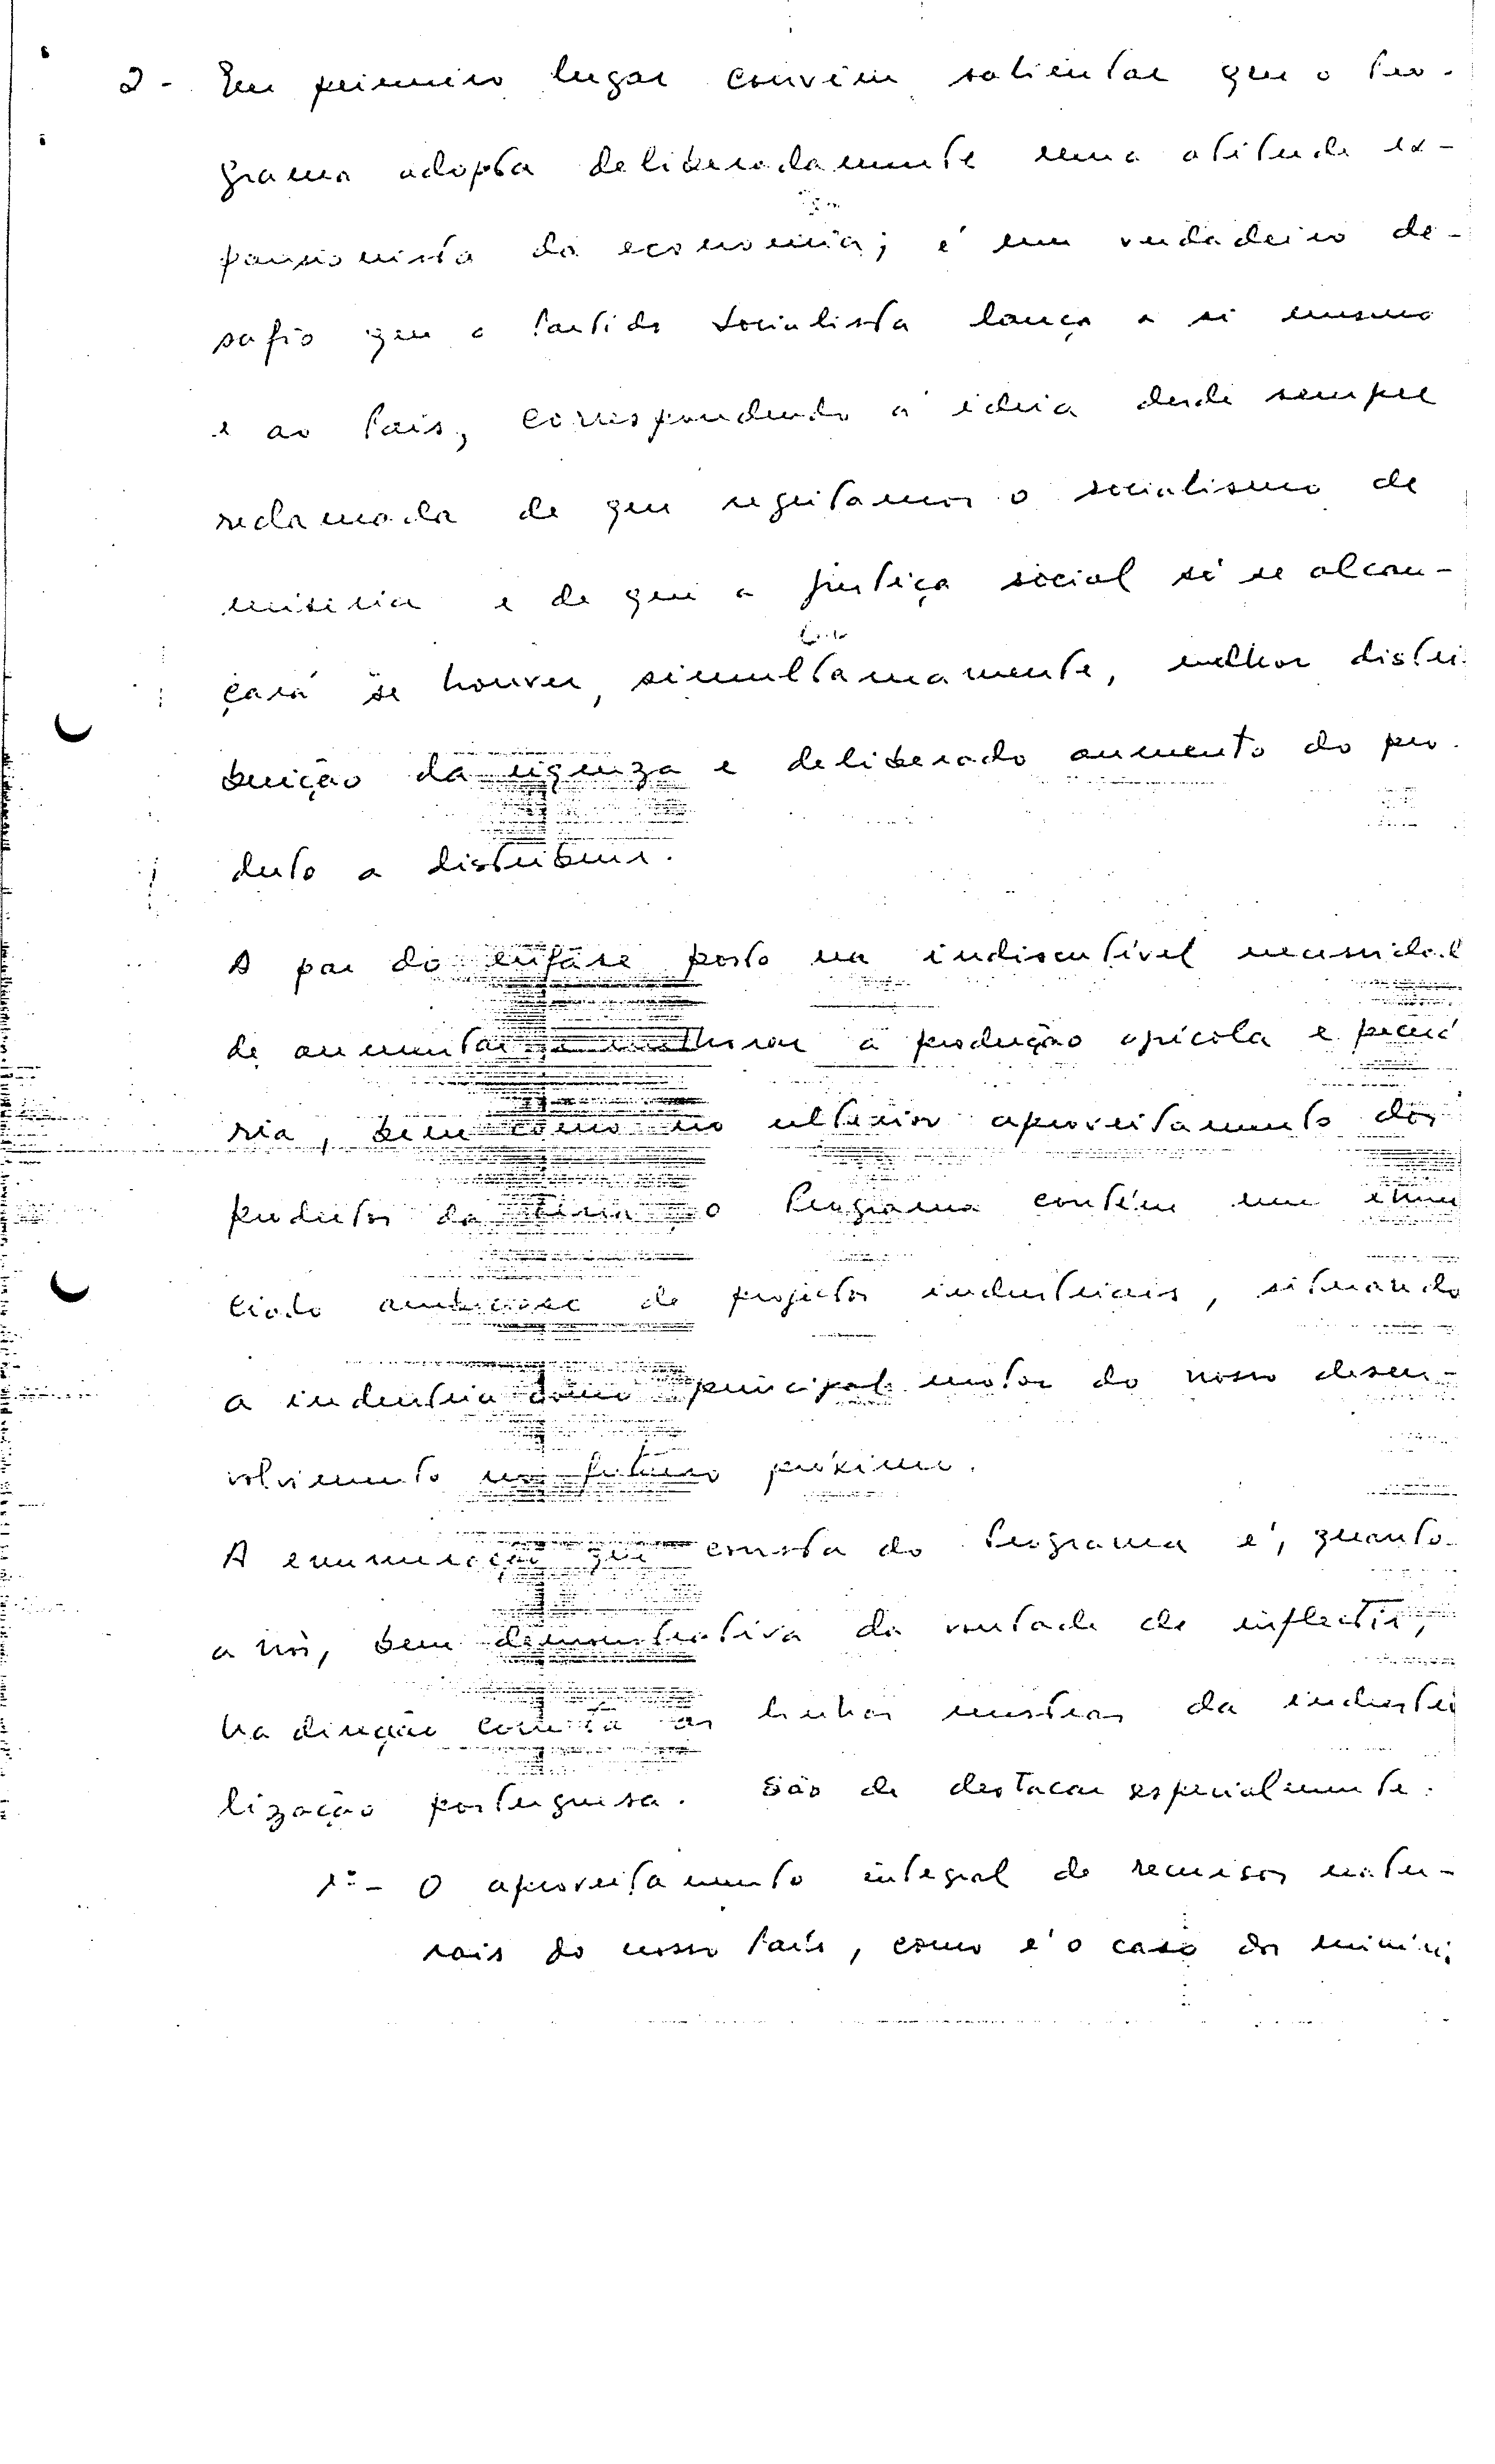 2 - Em primeiro lugar convém salientar que o Pro-
grama adopta deliberadamente uma atitude ex-
pansionista da economia; é um verdadeiro de-
safio que o Partido Socialista lança a si mesmo
e ao País, correspondendo à ideia desde sempre
reclamada de que rejeitamos o socialismo de
miséria e de que a justiça social só se alcan-
çará se houver, simultaneamente, melhor distri
buição da riqueza e deliberado aumento do pro-
duto a distribuir.
A par da enfâse posta na indiscutível necessidad
de aumentar e melhorar a produção agrícola e pecuá
ria, bem como no ulterior aproveitamento dos
produtos da terra, o Programa contém um enun
ciado de projectos industriais, situando
a indústria como principal motor do nosso desen-
volvimento no futuro próximo.
A enumeração que consta do Programa é, quanto
a nós, bem demonstrativa da vontade de inflectir,
na direcção correcta as linhas mestras da industri
lização portuguesa. São de destacar especialmente:
1º - O aproveitamento integral de recursos natu-
rais do nosso País, como é o caso dos minéri